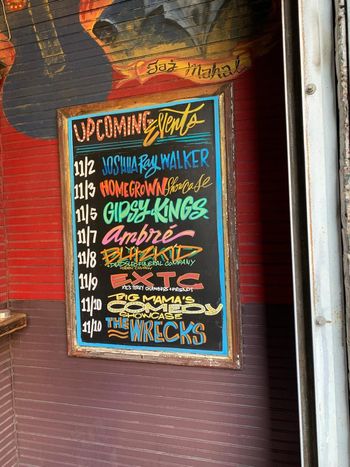 Taj Mahal
UPCOMING Events
11/2 JOSHUA Ray WALKER
11/3 HOMEGROWN Showcase
11/5 GIPSY KINGS
11/7 Ambré
11/8 BLITZKID
FUNERAL COMPANY
11/9 EXTC
XTC'S TERRY CHAMBERS & FRIENDS
11/10 BIG MAMA'S
COMEDY
SHOWCASE
11/10 THE WRECKS